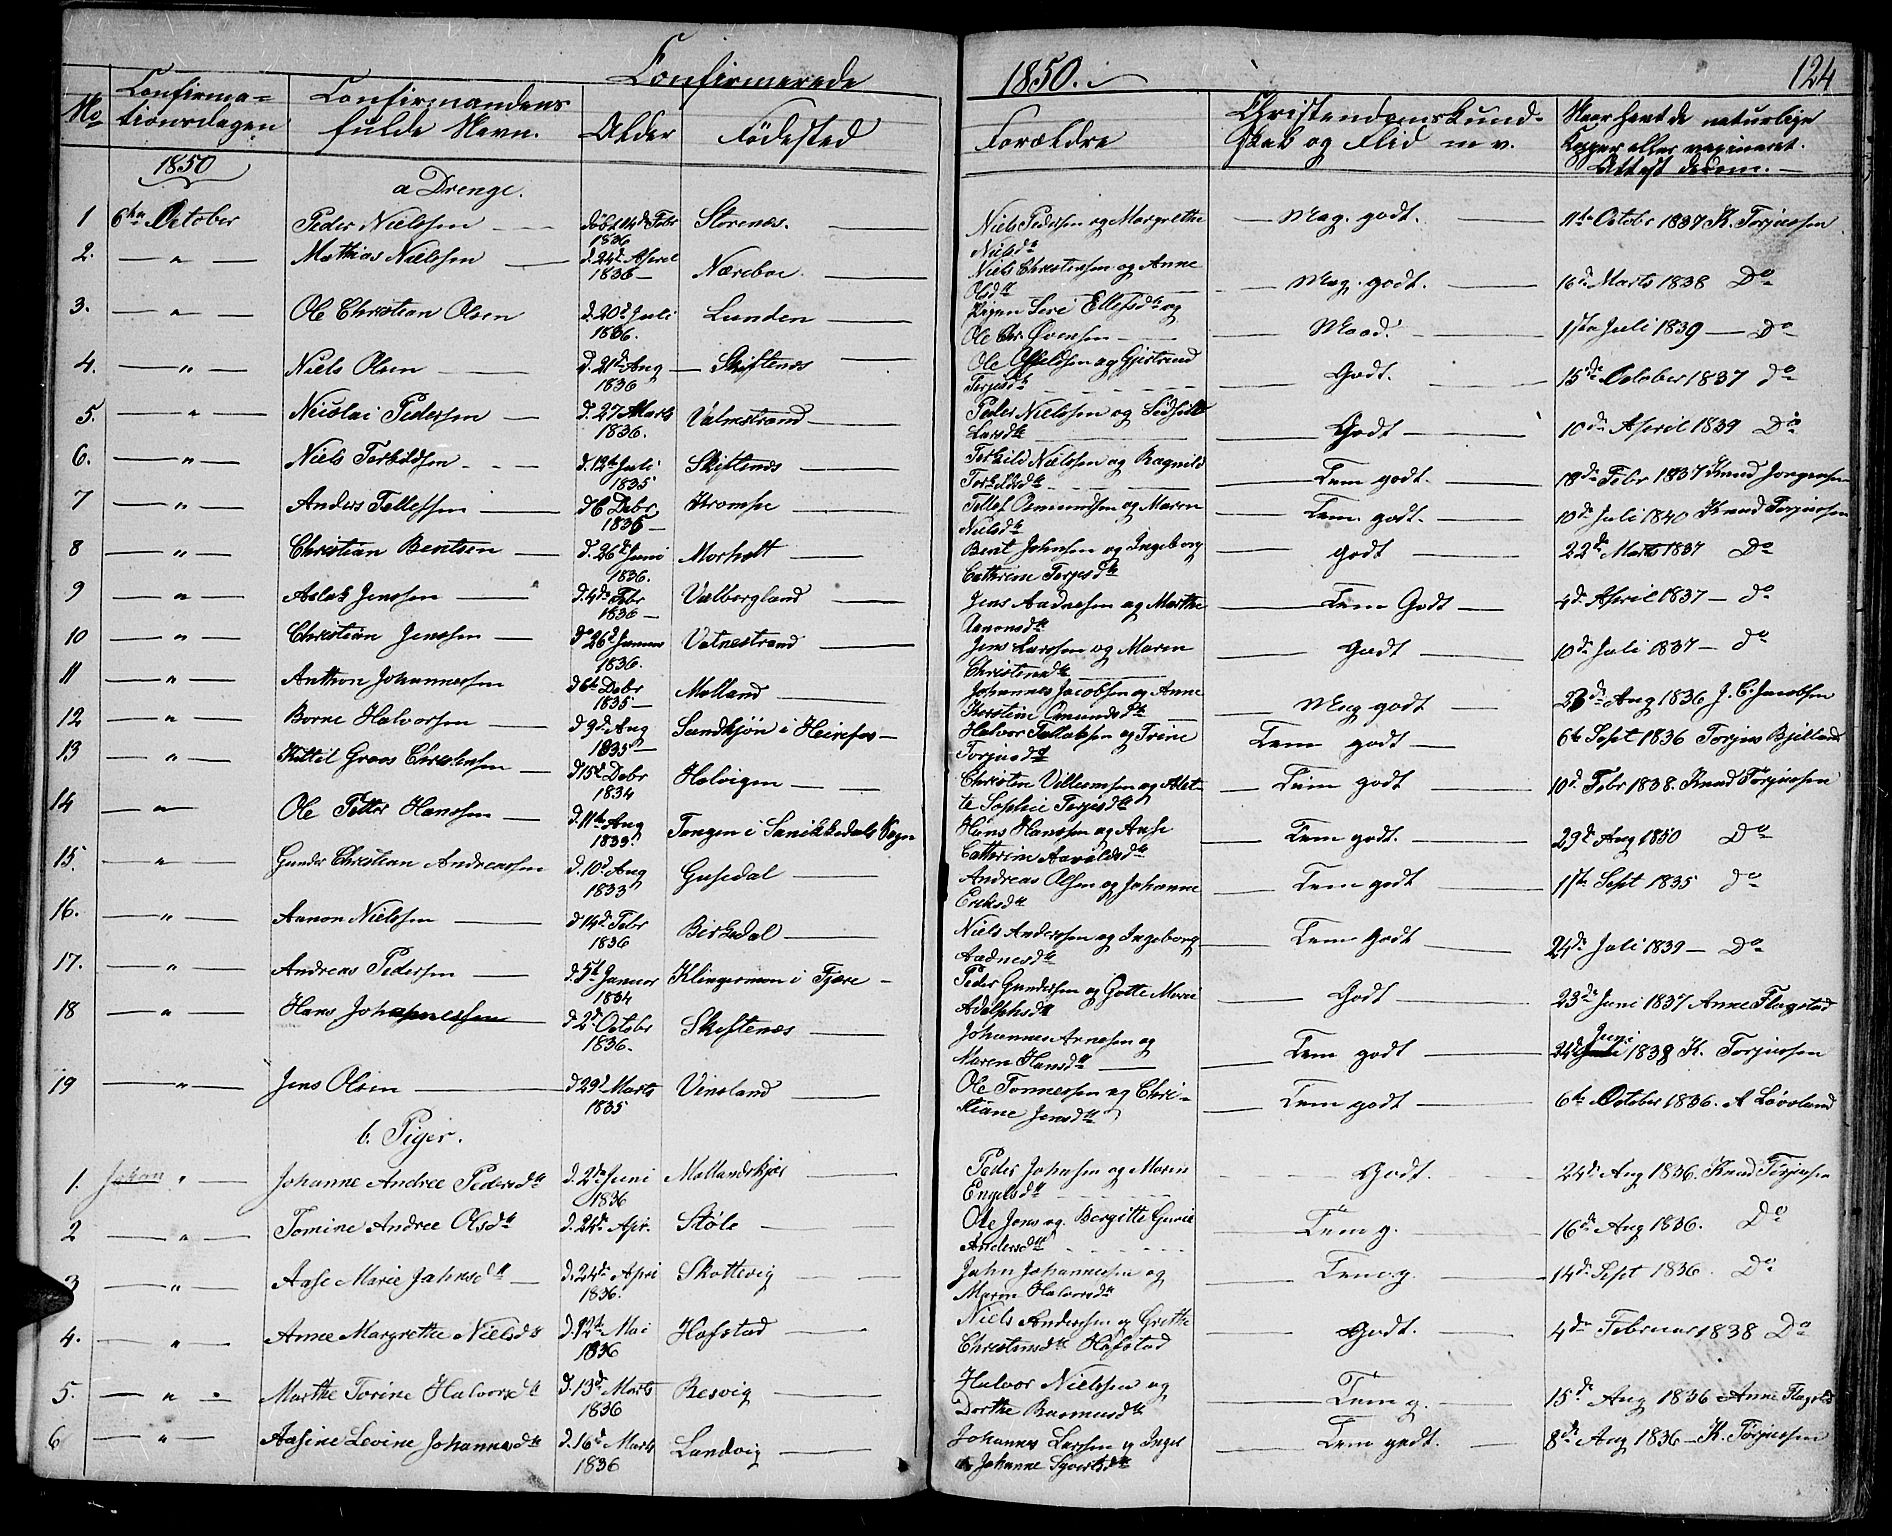 Confirmerede 1850. 124
No Confirmationsdagen Confirmandens fulde Navn. Alder Fødested Forældre Christendomskundskab og Flid m. v. Naar havt de naturlige Kopper eller vaccineret. Attest derom.
1850
a Drenge.
1 6te October Peder Nielssen døbt 14de Febr 1836 Storenæs. Niels Pedersen og Margrethe Nielsdt Meg. godt. 11te Octobr 1837 K. Torjussen
2. " Mathias Nielssen d. 24de April 1836 Næreboe. Niels Christenssen og Anne Olsdt Meg. godt. 16de Marts 1838 Do
3. " Ole Christian Olsen d. 20de Juli 1836. Lunden Pigen Siri Ellefsdtr og Ole Chr. Øvensen Maad. 1ste Juli 1839 Do
4. " Niels Olsen d. 21de Aug 1836 Skiftenes Ole Osuldsen og Gjertrud Terjesdt Godt. 15de October 1837 do
5. " Nicolai Pedersen d. 27 Marts 1836. Valmstrand Peder Nielssen og Sidsel Larsdt Godt 10de April 1839 Do
6. " Niels Terkildsen d. 12te Juli 1835 Skiftenes Terkild Nielssen og Ragnild Torkildsdt Tem godt. 18de Febr 1837 Knud Jørgensen
7 " Anders Tellefsen d 6 Debr 1835 Stromse Tellef Omundsen og Maren Nielsdt Tem. godt. 10de Juli 1840 Knud Torjussen
8 " Christian Bentsen d. 26de Juni 1836. Morholt Bent Johnsen og Ingeborg Cathrine Terjesdt godt 22de Marts 1837 Do
9 " Aslak Jenssen d. 4de Febr 1836 Valborgland Jens Aadnesen og Marthe Aanonsdt Tem Godt 4d. April 1837 do
10 " Christian Jenssen d. 26d Januar 1836. Vatnestrand Jens Larssen og Maren Christensdt Godt 10de Juli 1837 do
11 " Anthon Johannessen d 6te Debr 1835 Molland Johannes Jacobsen og Anne Kirstine Omundsdt Meg godt 23de Aug 1836 J. C. Jacobsen
12 " Borne Halvorsen d 9d Aug 1835 Sandkjøn i Heirefos Halvor Tallaksen og Trine Torjusdt Tem godt 6te Sept 1836 Torjus Bjelland
13 " Kittil Groos Christensen d 15d Debr 1834 Holvigen Christen Villumsen og Alette Sophie Terjesdt Tem godt 10d. Febr 1838. Knud Torjussen
14 " Ole Petter Hanssen d. 11te Aug 1833. Tangen i Sanikkedals Sogn Hans Hanssen og Aase Cathrine Aavoldsdt Tem godt. 29d Aug 1850 Do
15. " Gunder Christian Andreassen d. 10d Aug 1833 Gusedal Andreas Olsen og Johanne Eriksdt Tem godt 11te Sept 1835 do
16. " Aanon Nielssen d 14d Febr 1836 Birkedal Niels Anderssen og Ingeborg Aadnesdt Tem Godt 24de Juli 1839 Do
17. " Andreas Pedersen d. 5te Januar 1834 Klingermon i Fjære Peder Gundersen og Gotte Marie Adolphsdt Godt 23de Juni 1837 Anne Flagstad
18 " Hans Johannessen d 2d Octobr 1836. Skiftenæs Johannes Arnesen og Maren Hansdt Tem godt 24de Juni 1838 K. Torjussen
19 " Jens Olsen d 29d Marts 1835 Vinsland Ole Tonnessen og Christiane Jensdt Tem godt 6te October 1836. A Løvsland
b. Piger.
1. Johan " Johanne Andree Pedersdtt d. 2de Juni 1836 Mollandskjær Peder Johnsen og Maren Engelsdt Godt. 24de Aug 1836. Knud Torjussen
2 " Tomine Andree Olsdt d. 24de Apr. Støle Ole Jens og Bergitte Gurie Andersdtt Tem g. 16de Aug 1836. Do
3 " Aase Marie Jahnsdtt d. 24de Apri 1836. Skottevig Jahn Johannessen og Maren Halvorsdt Tem g. 14de Sept 1836. Do
4. " Anne Margrethe Nielsdt d. 12te Mai 1836 Hofstad Niels Anderssen og Grethe Christensdt Hofstad Godt. 4de Februar 1838 Do
5. " Marthe Torine Halvorsdt d. 13d Marts 1836 Resvig Halvor Nielssen og Dorthe Rasmusdt Tem g. 15de Aug 1836 Anne Flagstad
6 " Aasine Levine Johannesdt d. 16d Marts 1836 Landvig Johannes Larssen og Inger Johanne Syvertsdt Tem godt. 8de Aug 1836 K. Torjussen